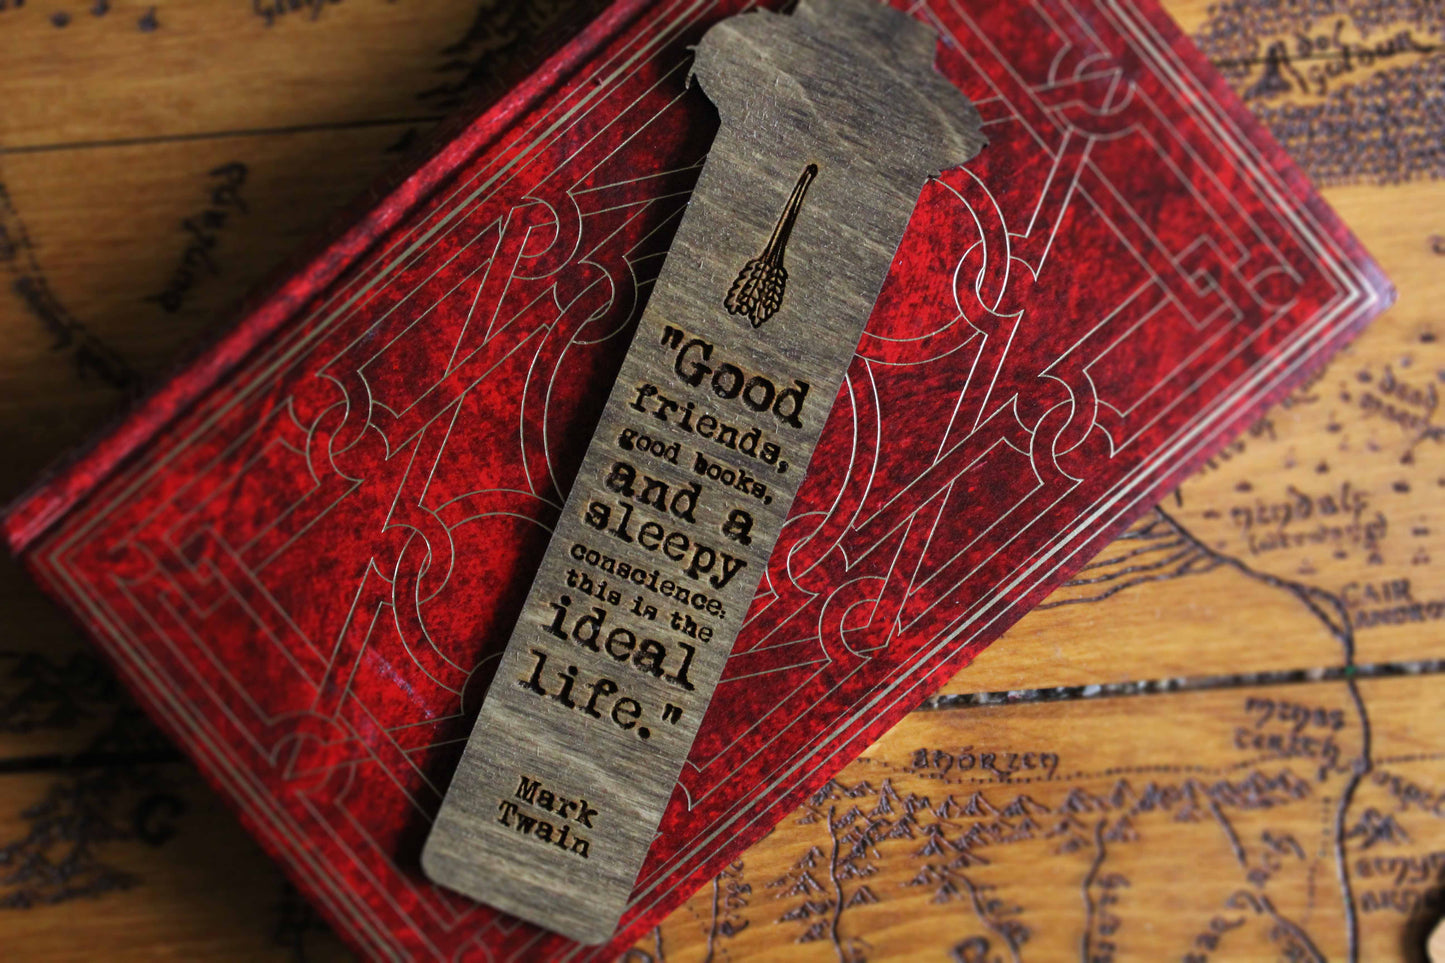 "Good
friends,
good books,
and a
sleepy
conscience:
this is the
ideal
life."
Mark
Twain
CAIR
ANDROS
anórien
minas
tirith